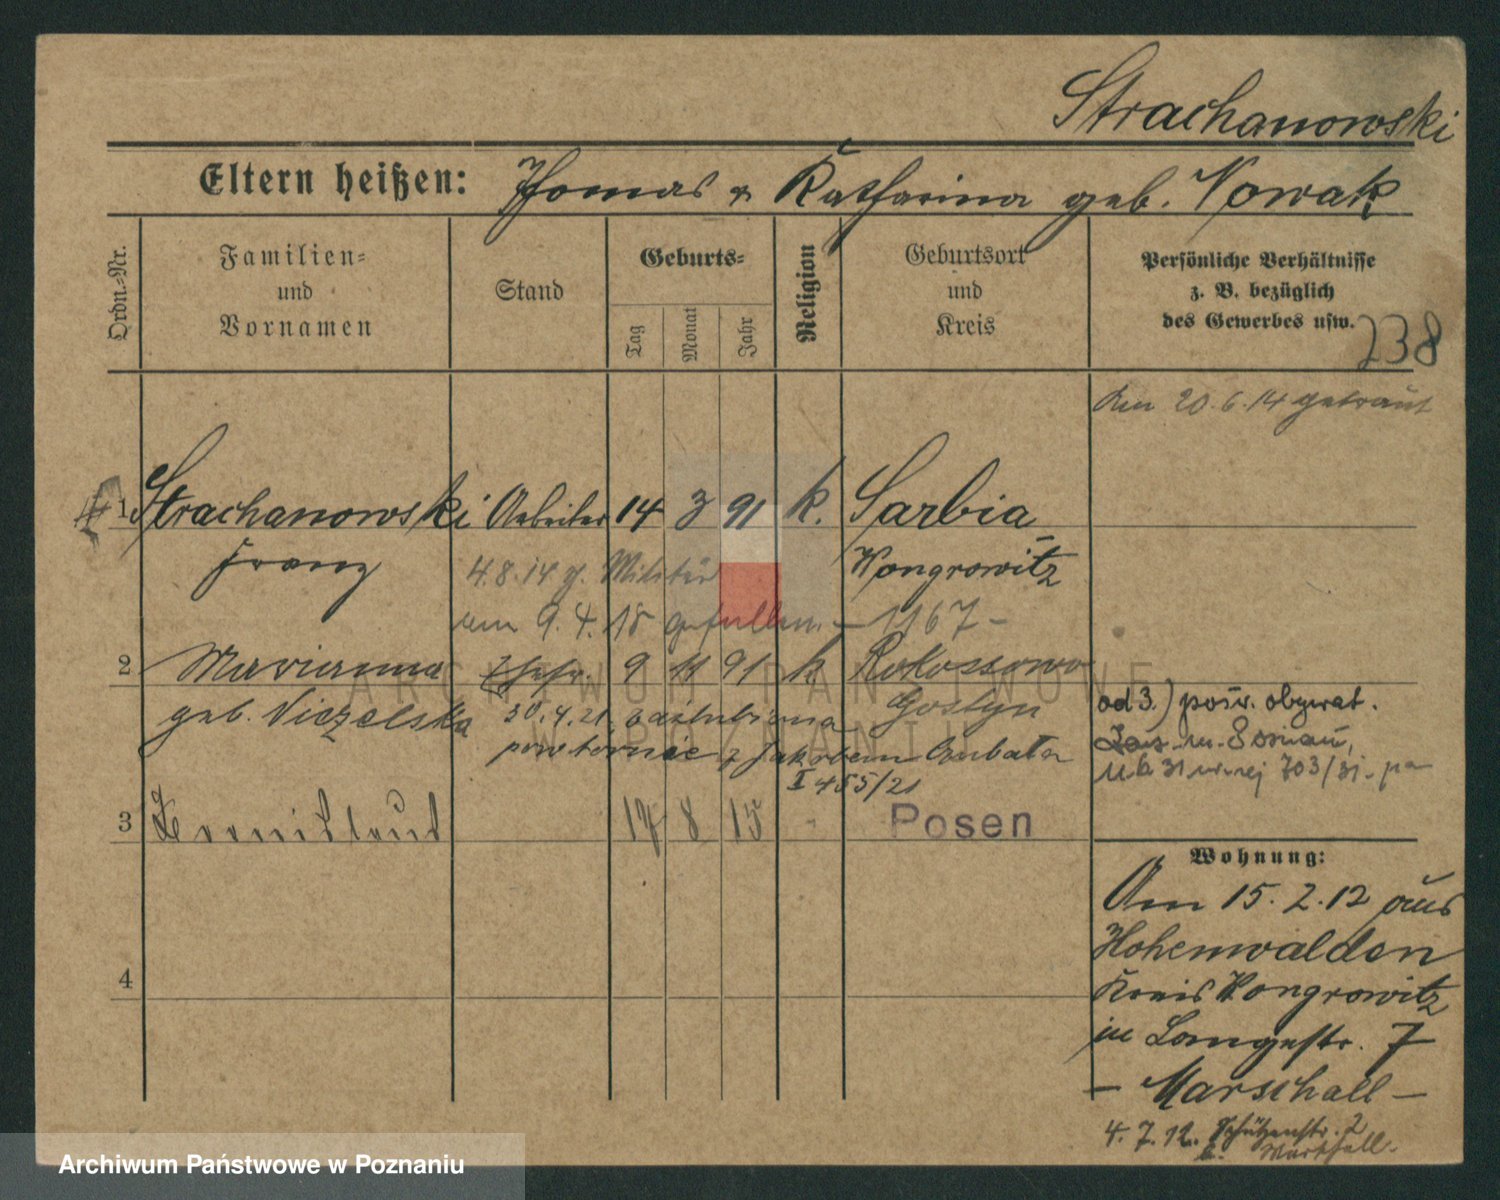 Strachanowski
Eltern heißen: Thomas & Katharina geb. Nowak
Ordn.-Nr.
Familien-
und
Vornamen
Stand
Geburts-
Tag
Monat
Jahr
Religion
Geburtsort
und
Kreis
Persönliche Verhältnisse
z. B. bezüglich
des Gewerbes usw.
238
den 20.6.14 getraut
1 Strachanowski Arbeiter 14 3 91 k. Sarbia
Franz
Wongrowitz
4.8.14 z. Militär
am 9.4.18 gefallen. – 1167 –
2 Marianna Ehefr. 9 11 91 k Rokossowo
geb. Viezelska
Gostyn
30.4.21 zaślubiona
powtórnie z Jakóbem
I 455/21
ad 3.) pośw. obywat.
703/31
3 17 8 15 Posen
4
Wohnung:
Am 15.2.12 aus
Hohenwalden
Kreis Wongrowitz
in Langestr. 7
– Marschall –
4.7.12. Schützenstr. 2
ARCHIWUM PAŃSTWOWE
W POZNANIU
Archiwum Państwowe w Poznaniu